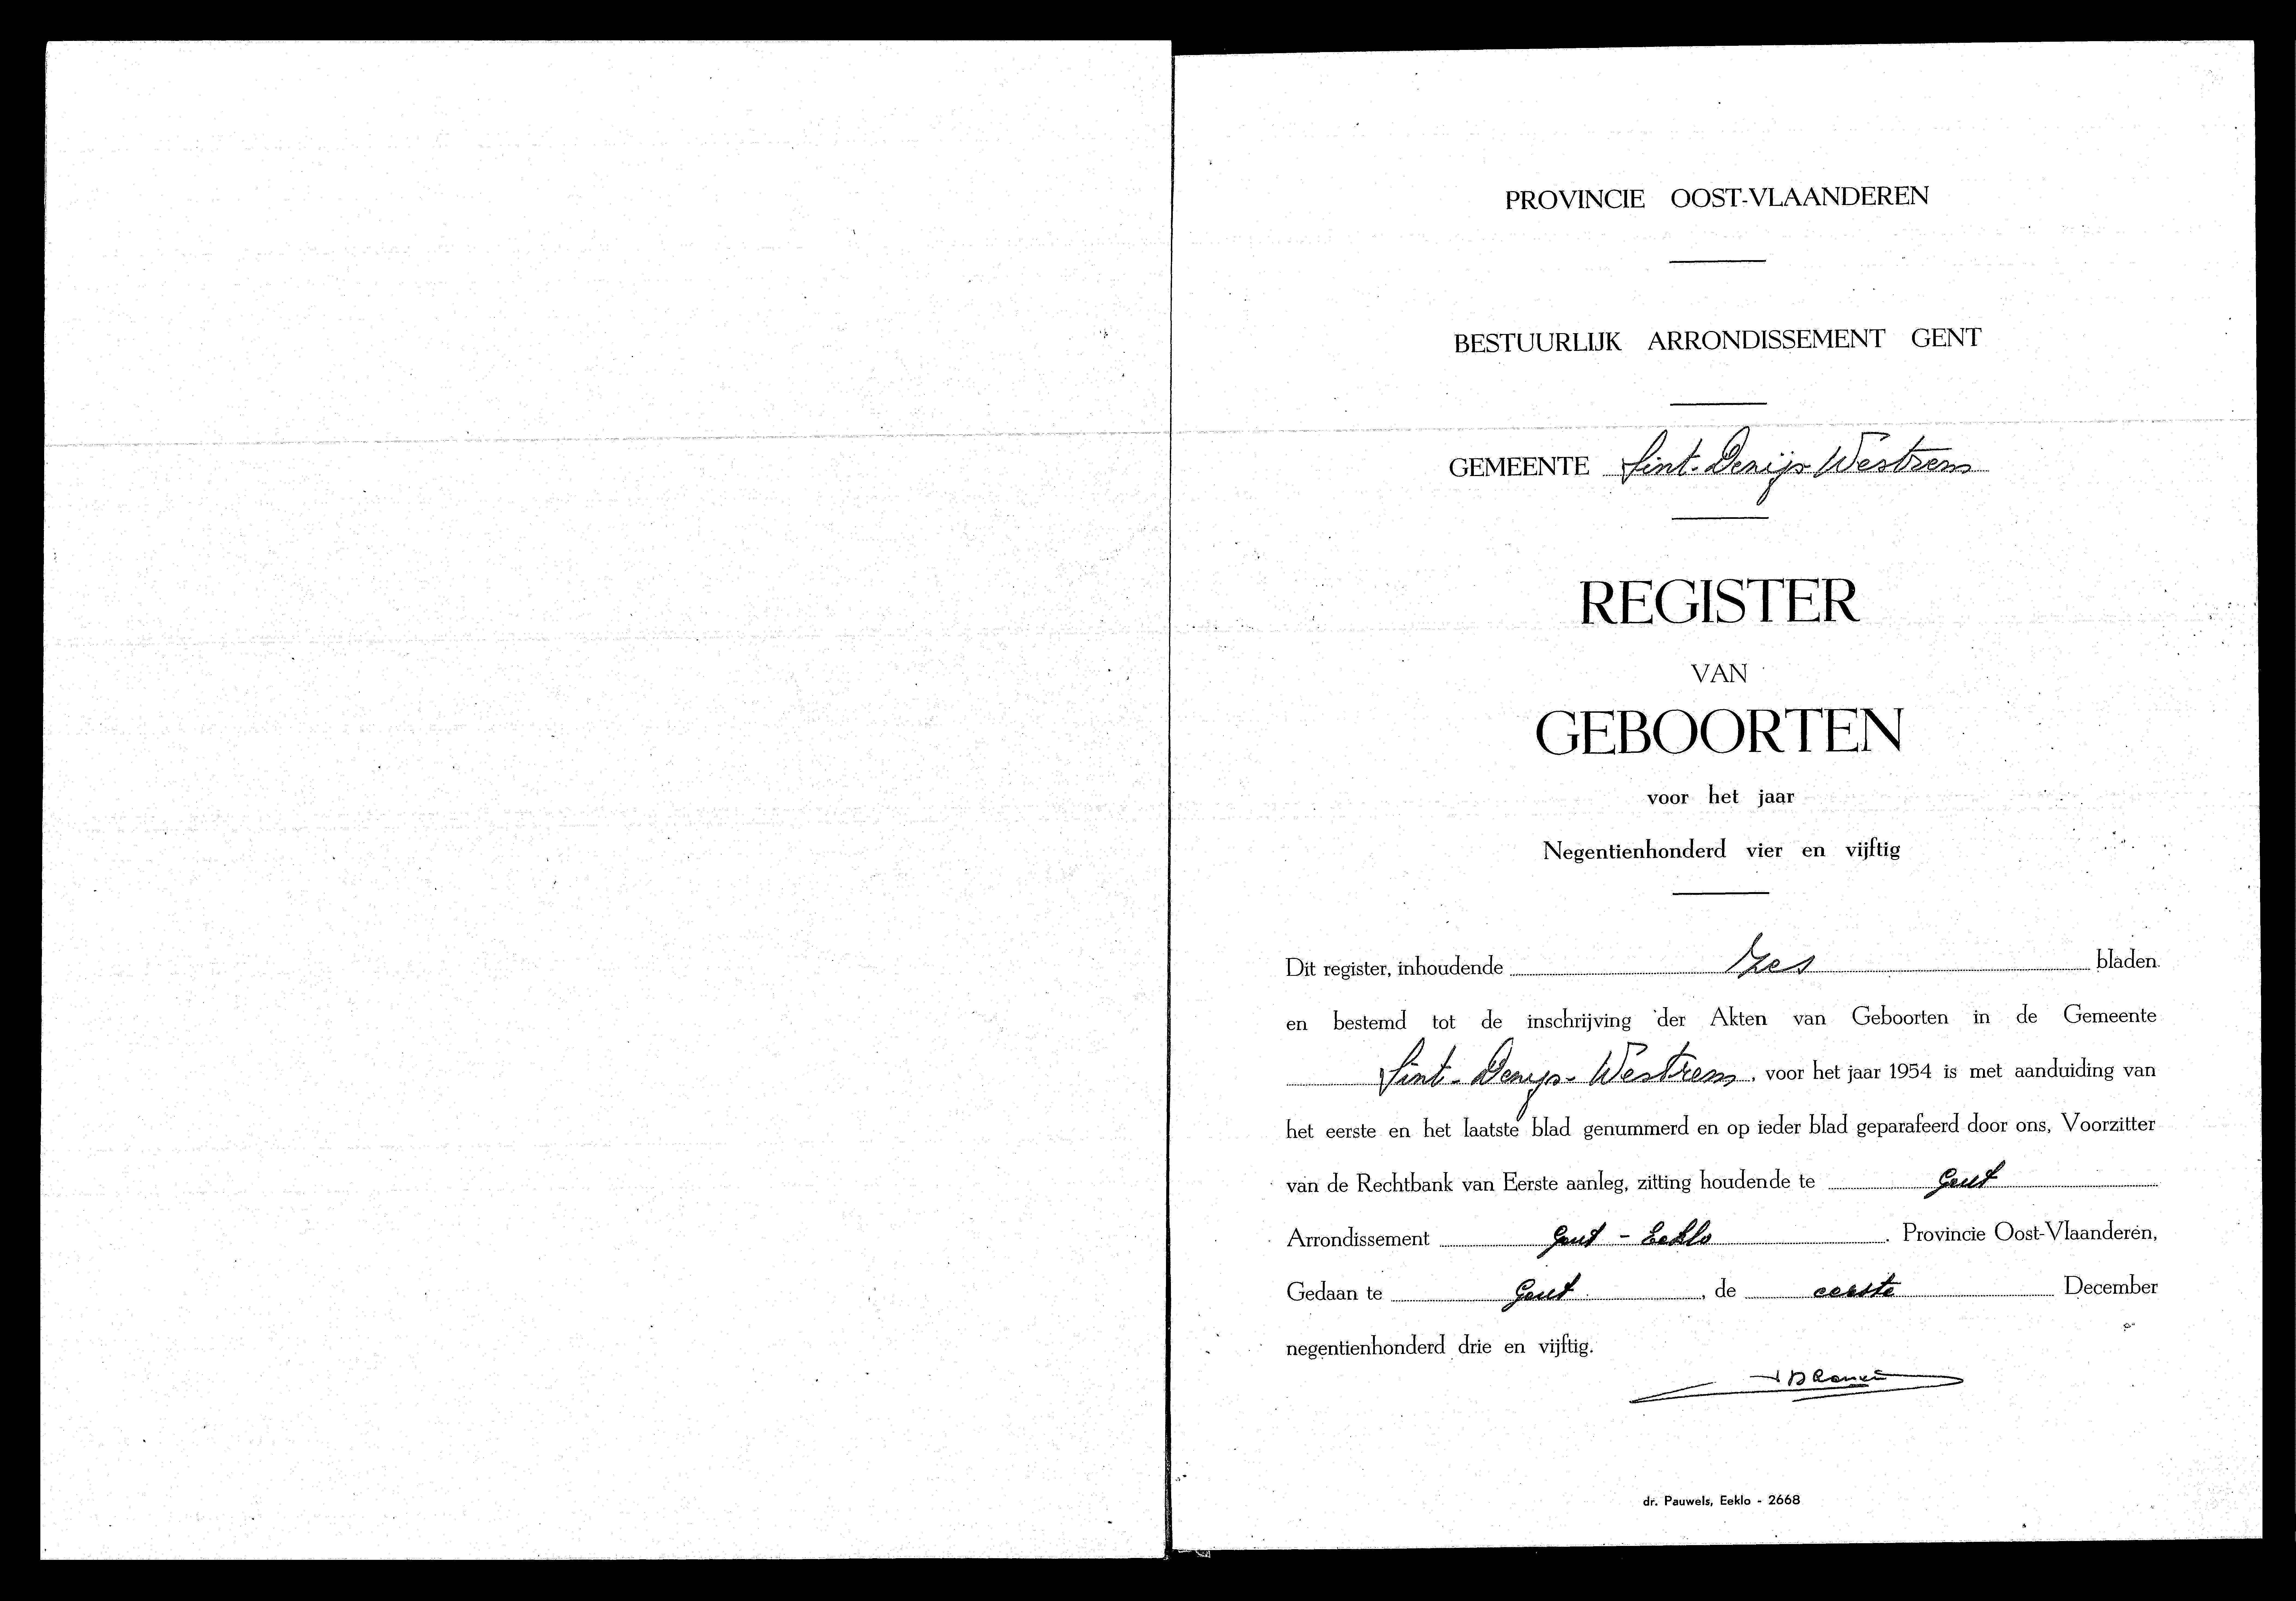 PROVINCIE OOST-VLAANDEREN
BESTUURLIJK ARRONDISSEMENT GENT
GEMEENTE Sint-Denijs Westrem
REGISTER
VAN
GEBOORTEN
voor het jaar
Negentienhonderd vier en vijftig
Dit register, inhoudende zes bladen
en bestemd tot de inschrijving der Akten van Geboorten in de Gemeente
Sint-Denijs-Westrem, voor het jaar 1954 is met aanduiding van
het eerste en het laatste blad genummerd en op ieder blad geparafeerd door ons, Voorzitter
van de Rechtbank van Eerste aanleg, zitting houdende te Gent
Arrondissement Gent - Eeklo. Provincie Oost-Vlaanderen,
Gedaan te Gent, de eerste December
negentienhonderd drie en vijftig.
dr. Pauwels, Eeklo - 2668